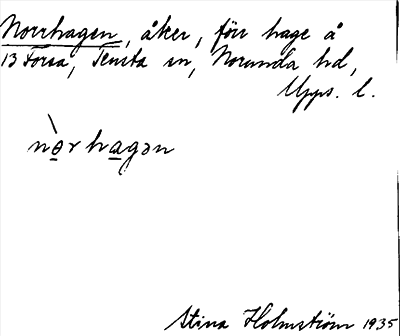 Norrhagen, åker, förr hage å
13 Forsa, Tensta sn, Norunda hd,
Upps. l.
nò̱rha̱gən
Stina Holmström 1935